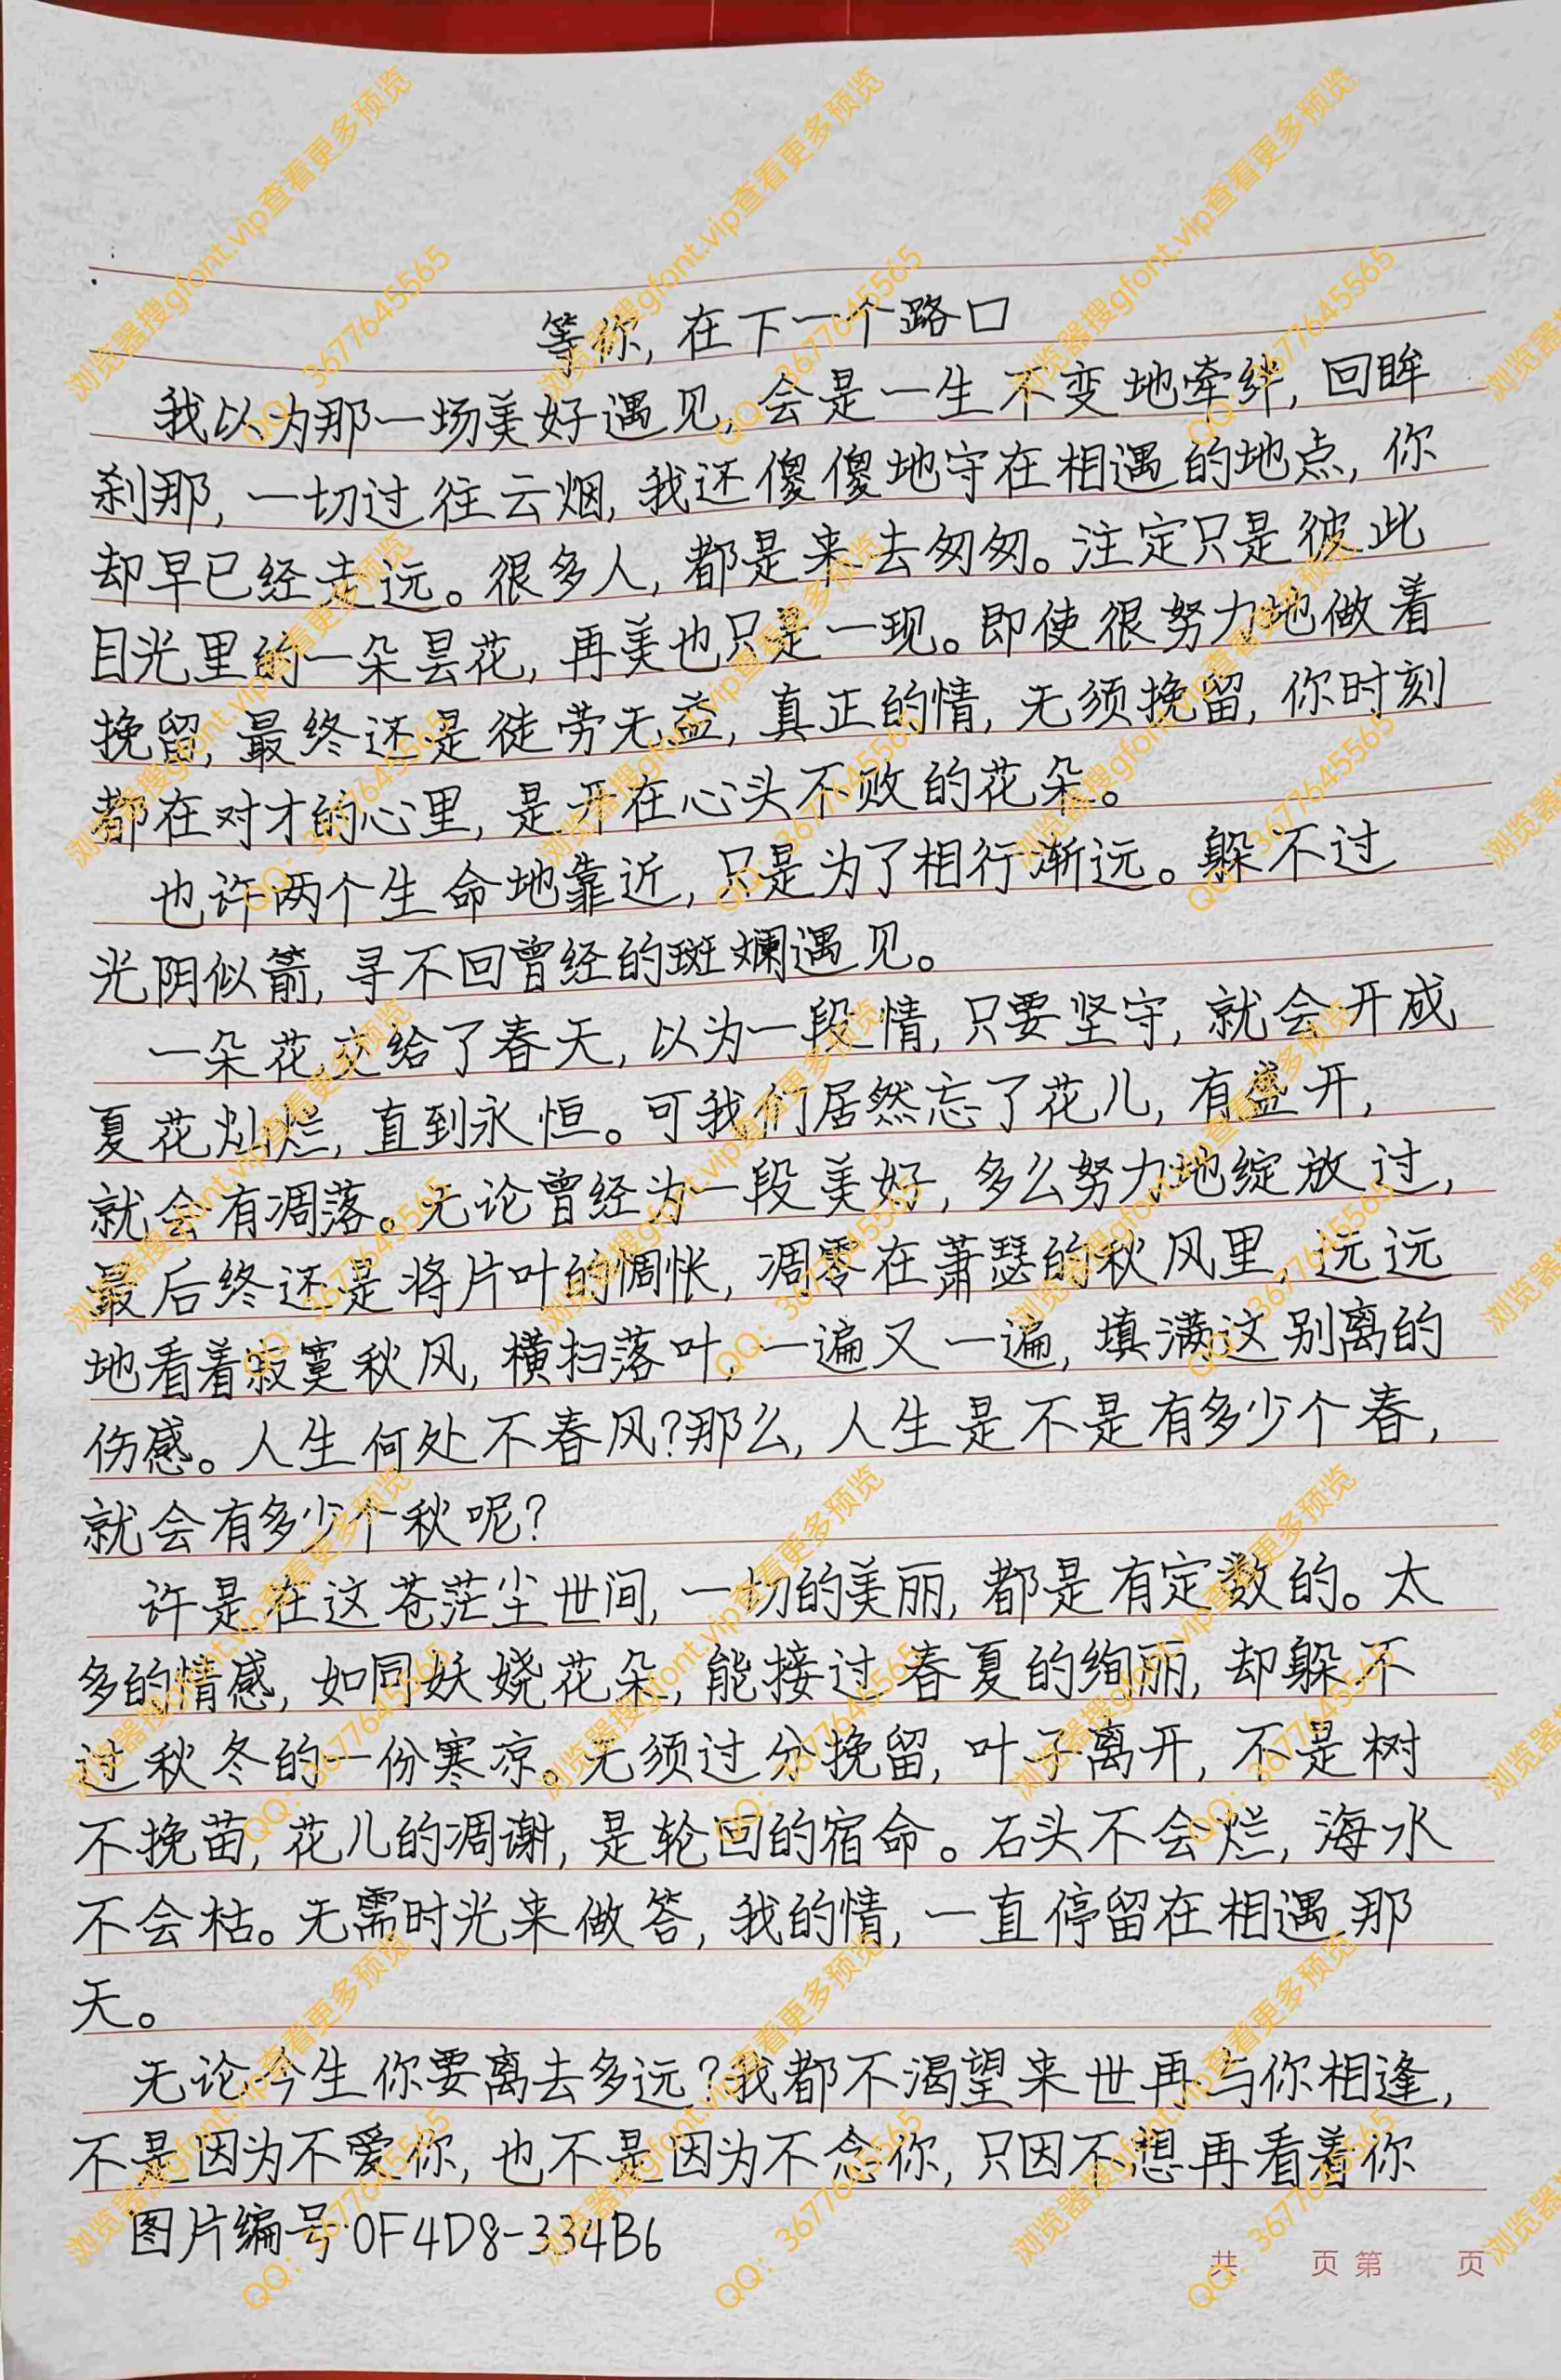 等你,在下一个路口
我以为那一场美好遇见,会是一生不变地牵绊,回眸
刹那,一切过往云烟,我还傻傻地守在相遇的地点,你
却早已经走远。很多人,都是来去匆匆。注定只是彼此
目光里的一朵昙花,再美也只是一现。即使很努力地做着
挽留,最终还是徒劳无益,真正的情,无须挽留,你时刻
都在对才的心里,是开在心头不败的花朵。
也许两个生命地靠近,只是为了相行渐远。躲不过
光阴似箭,寻不回曾经的斑斓遇见。
一朵花交给了春天,以为一段情,只要坚守,就会开成
夏花灿烂,直到永恒。可我们居然忘了花儿,有盛开,
就会有凋落。无论曾经为一段美好,多么努力地绽放过,
最后终还是将片叶的惆怅,凋零在萧瑟的秋风里,远远
地看着寂寞秋风,横扫落叶,一遍又一遍,填满这别离的
伤感。人生何处不春风?那么,人生是不是有多少个春,
就会有多少个秋呢?
许是在这苍茫尘世间,一切的美丽,都是有定数的。太
多的情感,如同妖娆花朵,能接过春夏的绚丽,却躲不
过秋冬的一份寒凉。无须过分挽留,叶子离开,不是树
不挽苗,花儿的凋谢,是轮回的宿命。石头不会烂,海水
不会枯。无需时光来做答,我的情,一直停留在相遇那
天。
无论今生你要离去多远?我都不渴望来世再与你相逢,
不是因为不爱你,也不是因为不念你,只因不想再看着你
图片编号:0F4D8-334B6
共 页 第 页
浏览器搜gfont.vip查看更多预览
QQ:3677645565